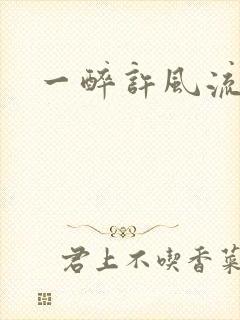 一醉許風流
君上不喫香菜